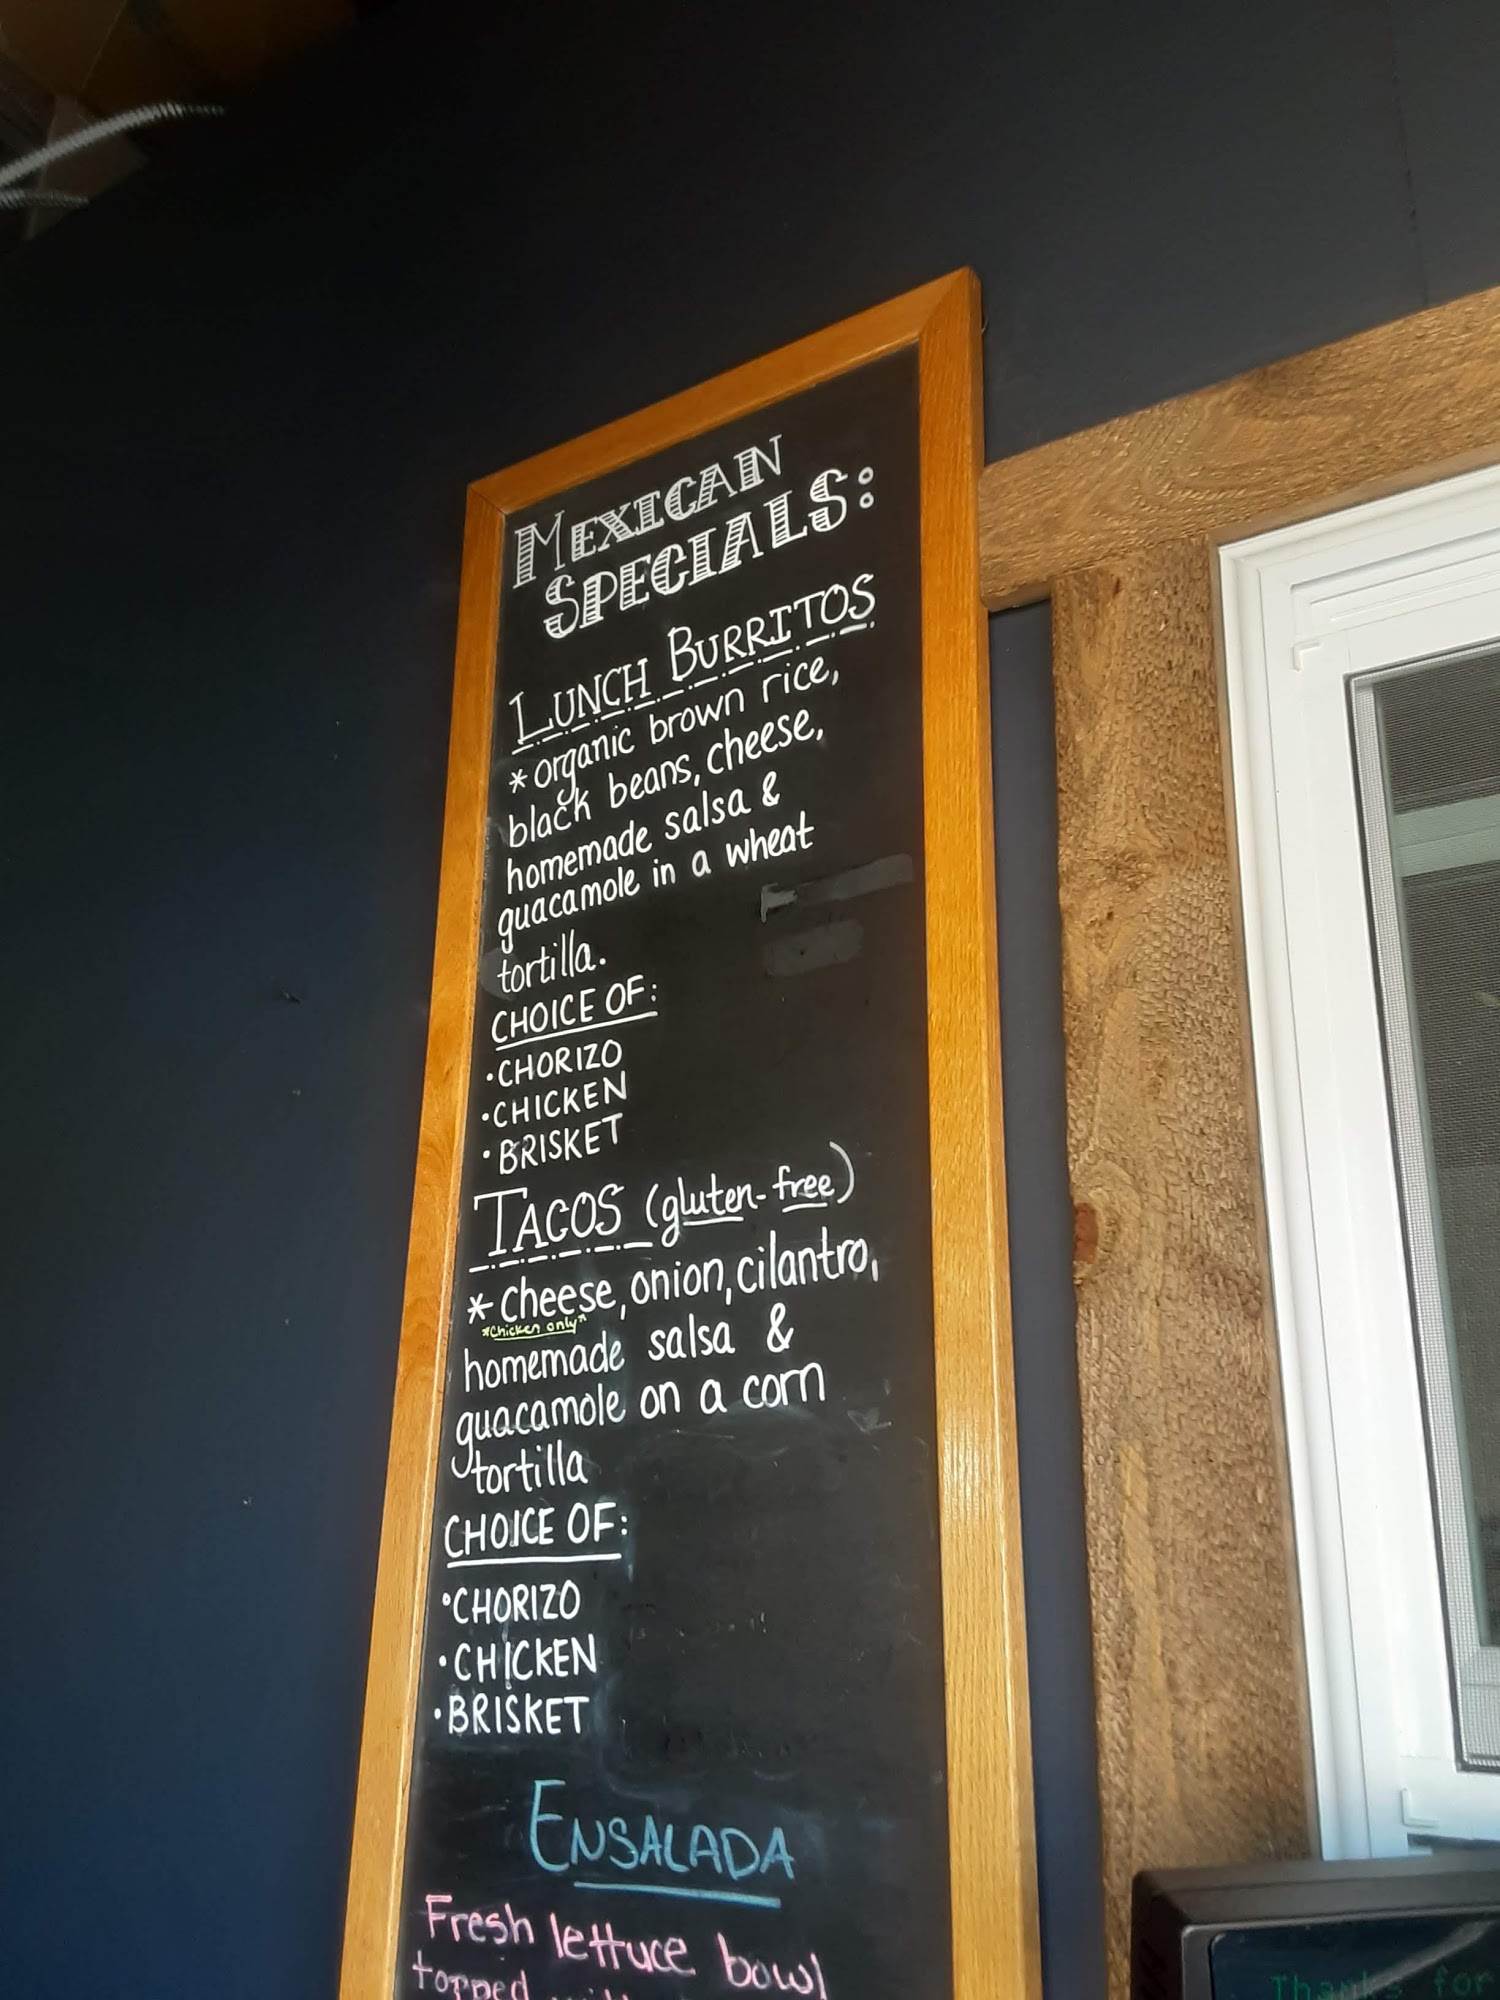 MEXICAN
SPECIALS:
LUNCH BURRITOS
* organic brown rice,
black beans, cheese,
homemade salsa &
guacamole in a wheat
tortilla.
CHOICE OF:
• CHORIZO
• CHICKEN
• BRISKET
TACOS (gluten-free)
* cheese, onion, cilantro,
*chicken only*
homemade salsa &
guacamole on a corn
tortilla
CHOICE OF:
• CHORIZO
• CHICKEN
• BRISKET
ENSALADA
Fresh lettuce bowl
topped
Thanks for